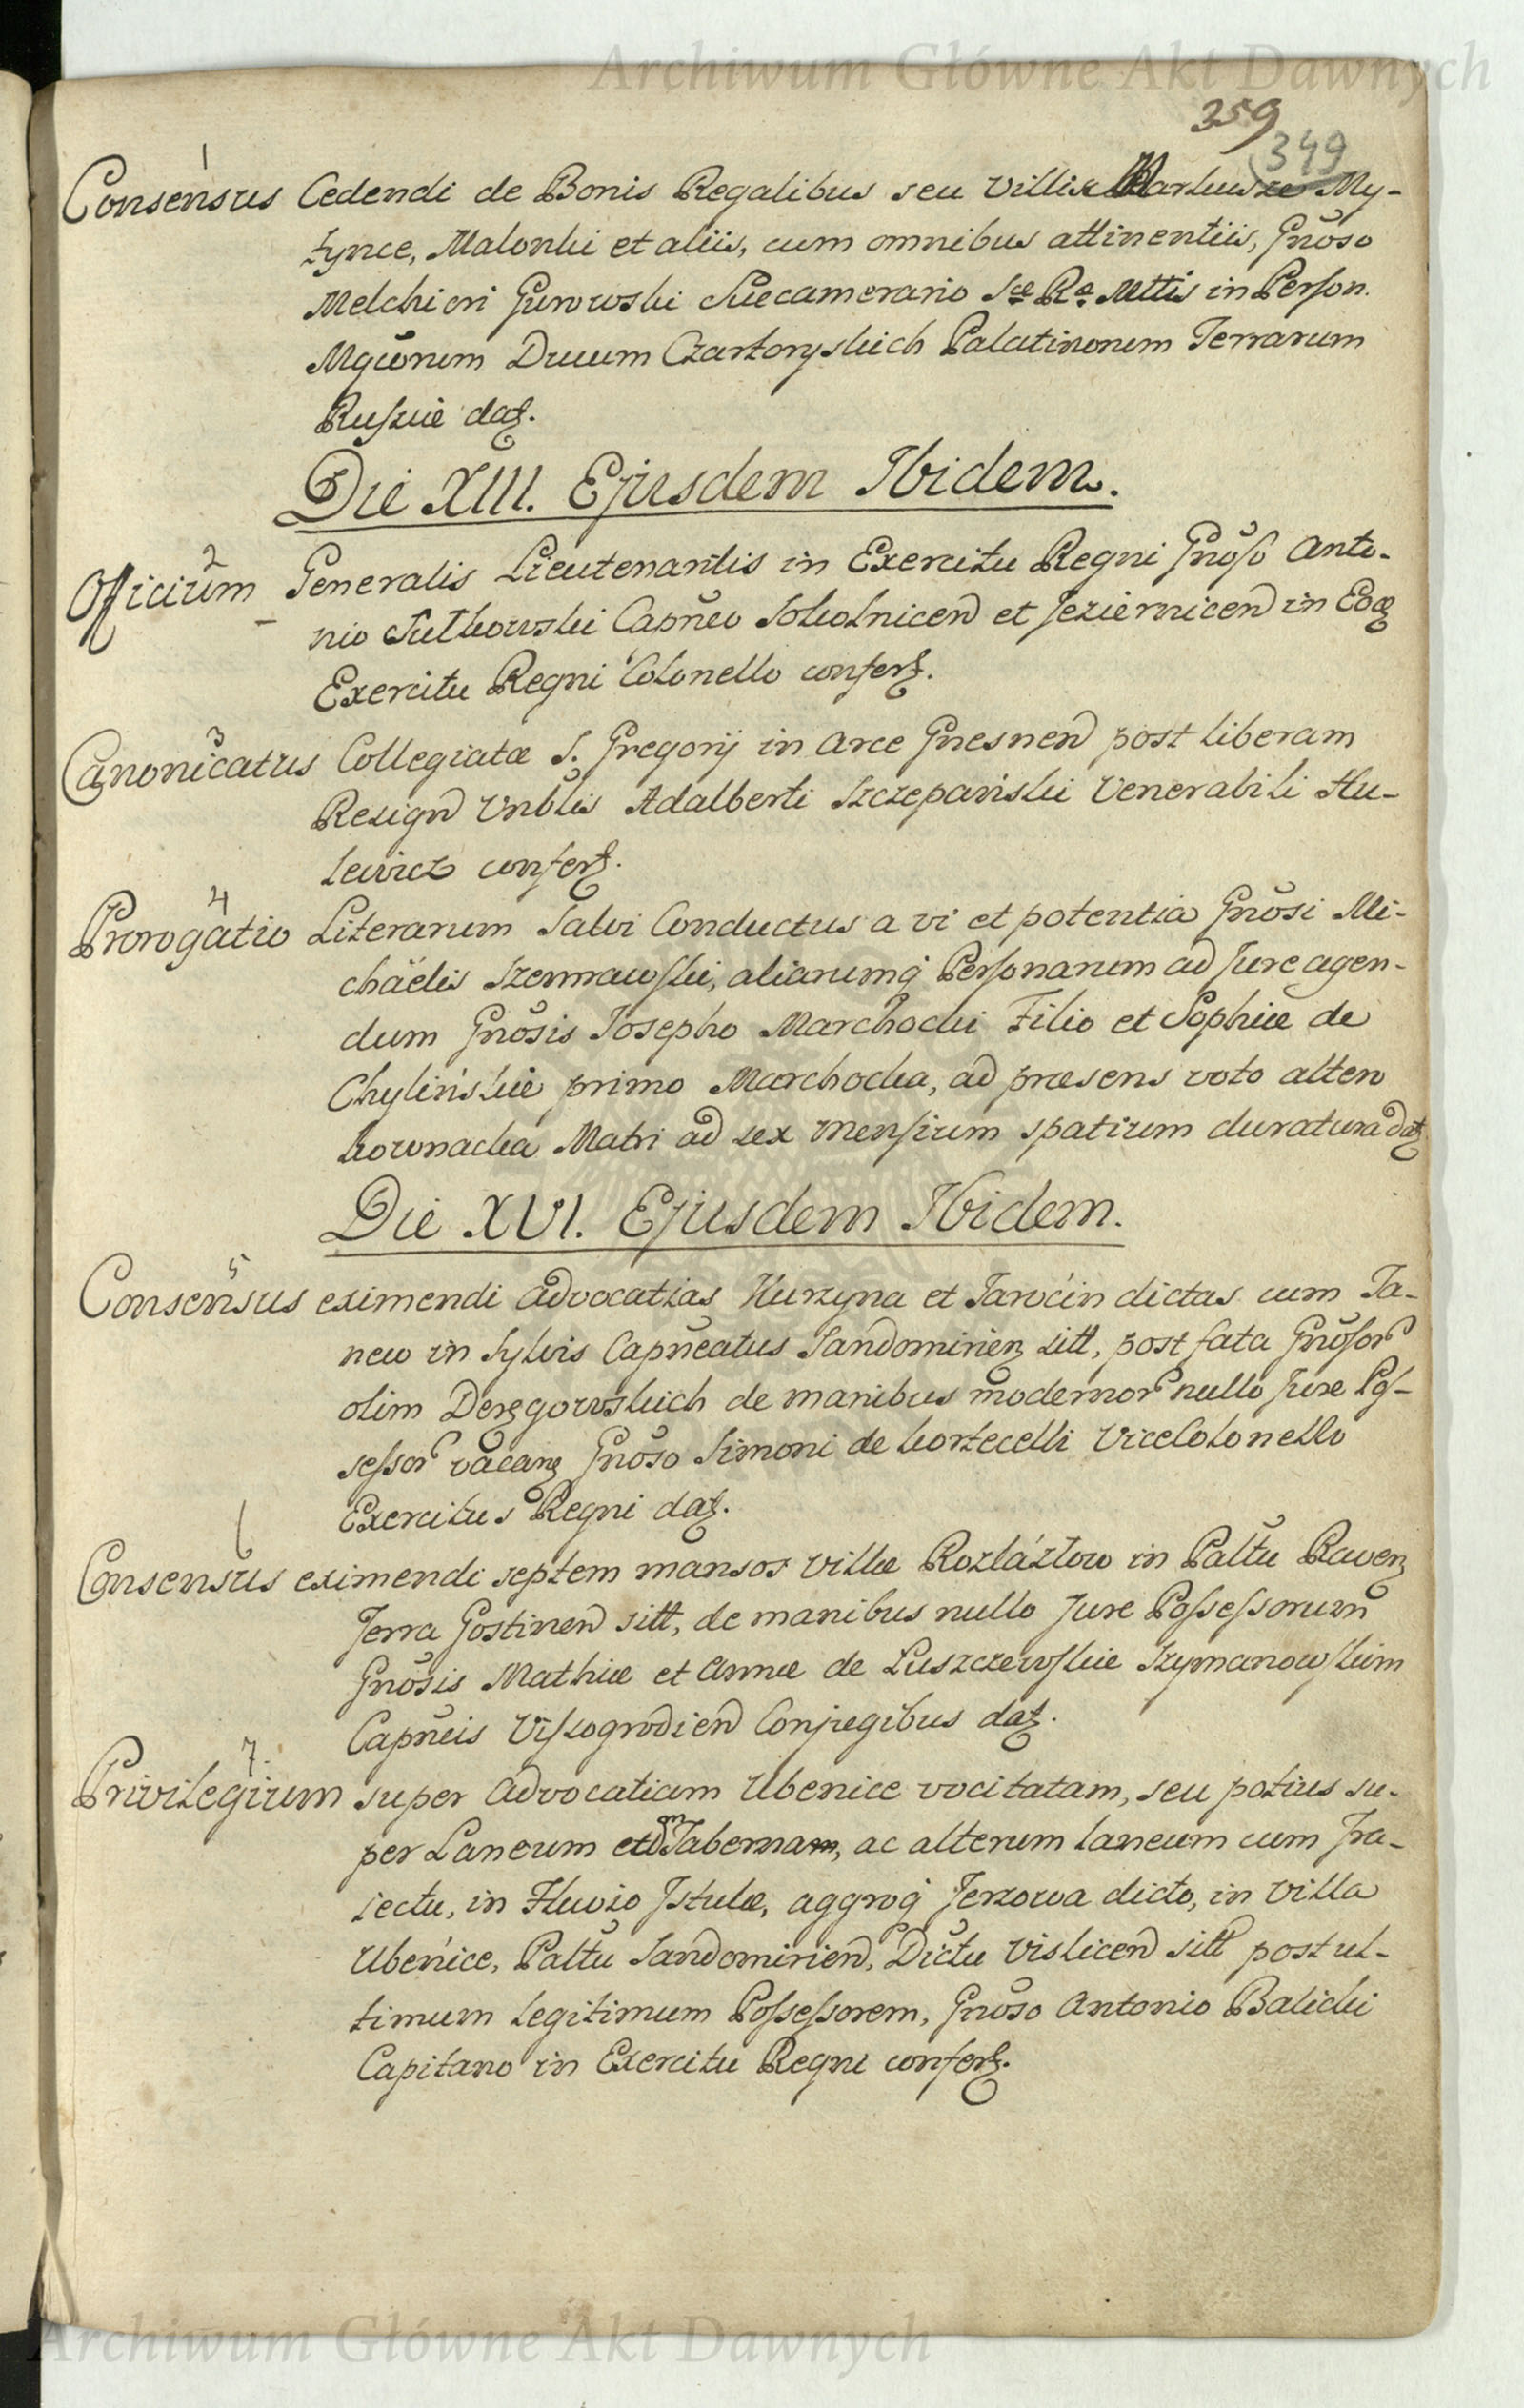 Archiwum Główne Akt Dawnych
359
349
1
Consensus Cedendi de Bonis Regalibus seu Villis Markusze My-
tynce, Malonki et aliis, cum omnibus attinentiis, Gnōso
Melchiori Gurowski Succamerario Sæ Ræ Mttis in Person.
Mgcorum Ducum Czartoryskich Palatinorum Terrarum
Russiæ dat.
Die XIII. Ejusdem Ibidem.
2
Officium Generalis Lieutenantis in Exercitu Regni Gnōso Anto-
nio Sułkowski Capneo Sokolnicen et Jeziernicen in Eod
Exercitu Regni Colonello confert.
3
Canonicatus Collegiatæ S. Gregorij in Arce Gnesnen post liberam
Resign Vnblis Adalberti Szczepański Venerabili Hu-
lewicz confert.
4
Prorogatio Literarum Salvi Conductus a vi et potentia Gnōsi Mi-
chäelis Szermawski, aliarumq Personarum ad Jure agen-
dum Gnōsis Josepho Marchocki Filio et Sophiæ de
Chylińskie primo Marchocka, ad præsens voto altero
Kownacka Matri ad sex mensium spatium duratura dat
Die XVI. Ejusdem Ibidem.
5
Consensus eximendi Advocatias Kurzyna et Tarócin dictas cum Ta-
new in Sylvis Capneatus Sandomirien sitt, post fata Gnōsor
olim Deręgowskich de manibus modernor nullo Jure Pos-
sessor vacan Gnōso Simoni de Kortecelli ViceColonello
Exercitus Regni dat.
6
Consensus eximendi septem mansos Villæ Rozlázłow in Paltu Raven
Terra Gostinen sitt, de manibus nullo Jure Possessorum
Gnōsis Mathiæ et Annæ de Luszczewskie Szymanowskim
Capneis Vissogrodien Conjugibus dat.
7.
Privilegium super Advocatiam Ubenice vocitatam, seu potius su-
per Laneum et Tabernam, ac alterum laneum cum Tra-
iectu, in Fluvio Istulæ, aggroq Jerzowa dicto, in Villa
Ubenice, Paltu Sandomirien, Dictu Vislicen sitt post ul-
timum legitimum Possessorem, Gnōso Antonio Balicki
Capitano in Exercitu Regni confert.
Archiwum Główne Akt Dawnych